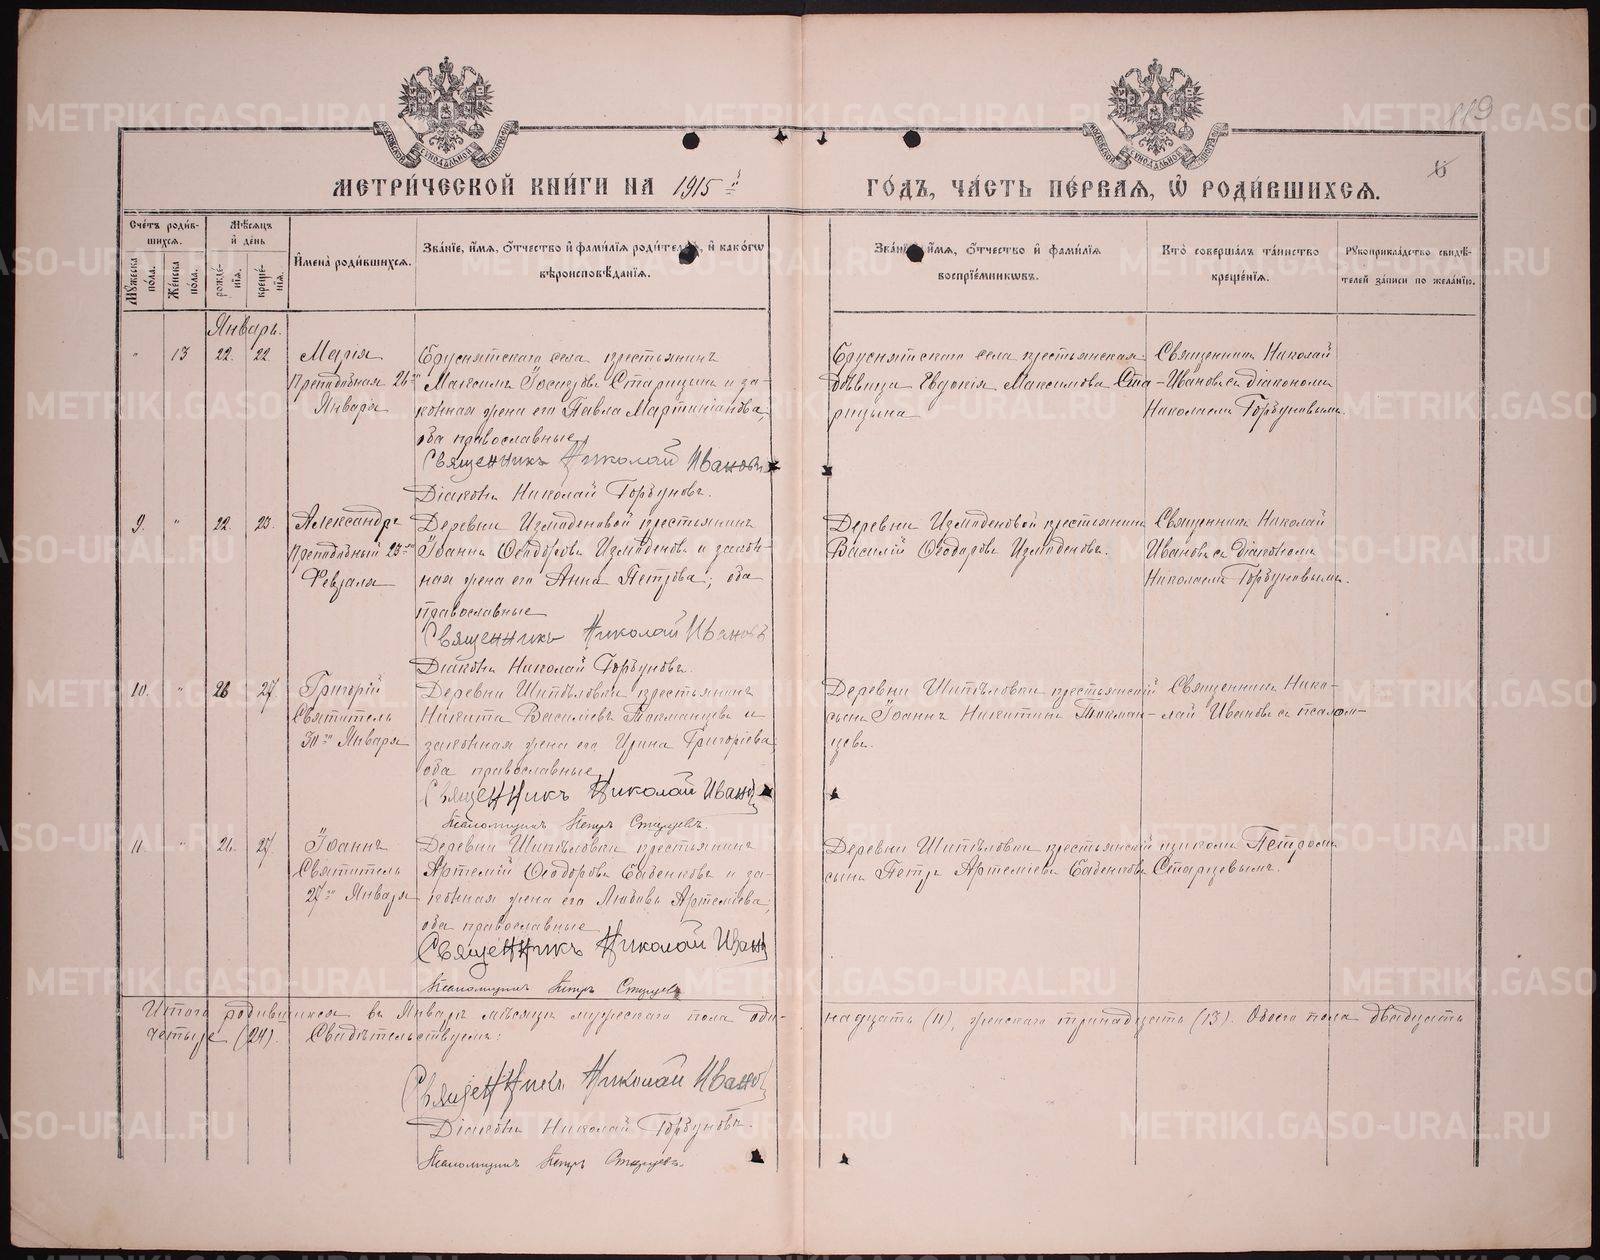 119
6
МЕТРИЧЕСКОЙ КНИГИ НА 1915й ГОДЪ, ЧАСТЬ ПЕРВАЯ, Ѡ РОДИВШИХСЯ.
Счетъ родившихся.
Мужеска пола.
Женска пола.
Мѣсяцъ и день
рожденія.
крещенія.
Имена родившихся.
Званіе, имя, отчество и фамилія родителей, и какого вѣроисповѣданія.
Званіе, имя, отчество и фамилія воспріемниковъ.
Кто совершалъ таинство крещенія.
Рукоприкладство свидѣтелей записи по желанію.
Январь.
" 13 22. 22
Марія
Преподобная 26го
Января
Бруснятскаго села крестьянинъ
Максимъ Іосифовъ Старицынъ и за-
конная жена его Павла Мартиніанова,
оба православные
Священникъ Николай Ивановъ
Діаконъ Николай Горбуновъ.
Бруснятскаго села крестьянская
дѣвица Евдокія Максимова Ста-
рицына
Священникъ Николай
Ивановъ съ діакономъ
Николаемъ Горбуновымъ.
9. " 22. 23.
Александръ
Преподобный 23го
Февраля
Деревни Измоденовой крестьянинъ
Іоаннъ Ѳеодоровъ Измоденовъ и закон-
ная жена его Анна Петрова; оба
православные
Священникъ Николай Ивановъ
Діаконъ Николай Горбуновъ.
Деревни Измоденовой крестьянинъ
Василій Ѳеодоровъ Измоденовъ.
Священникъ Николай
Ивановъ съ діакономъ
Николаемъ Горбуновымъ.
10. " 26 27.
Григорій
Святитель
30го Января
Деревни Шипѣловки крестьянинъ
Никита Василіевъ Токманцевъ и
законная жена его Ирина Григоріева
оба православные
Священникъ Николай Ивановъ
Псаломщикъ Петръ Старцевъ.
Деревни Шипѣловки крестьянскій
сынъ Іоаннъ Никитинъ Токман-
цевъ.
Священникъ Нико-
лай Ивановъ съ псалом-
11. " 26. 27.
Іоаннъ
Святитель
27го Января
Деревни Шипѣловки крестьянинъ
Артемій Ѳеодоровъ Бабенковъ и за-
конная жена его Любовь Артеміева,
оба православные
Священникъ Николай Ивановъ
Псаломщикъ Петръ Старцевъ
Деревни Шипѣловки крестьянскій
сынъ Петръ Артеміевъ Бабенковъ
щикомъ Петромъ
Старцевымъ.
Итого родившихся въ Январѣ мѣсяцѣ мужескаго пола оди-
надцать (11), женскаго тринадцать (13). Обоего пола двадцать
четыре (24). Свидѣтельствуемъ:
Священникъ Николай Ивановъ
Діаконъ Николай Горбуновъ.
Псаломщикъ Петръ Старцевъ.
METRIKI.GASO-URAL.RU